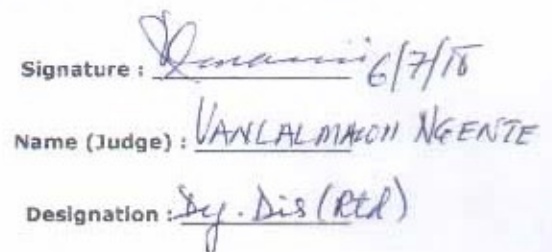 Signature : 6/7/18
Name (Judge) : VANLALMAWII NGENTE
Designation : Dy. Dis (Rtd)